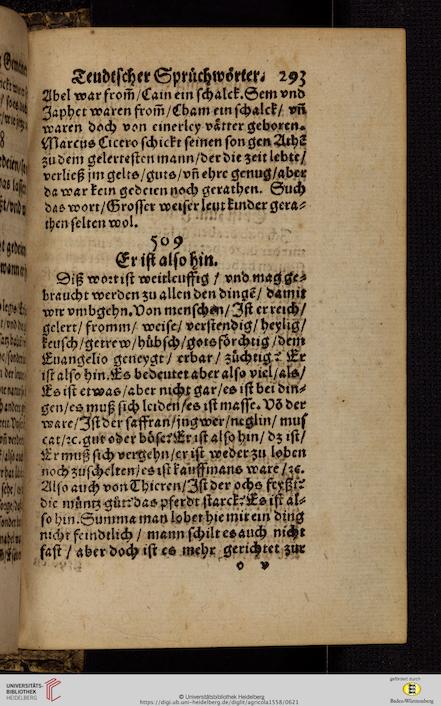 Teudtscher Sprüchwörter. 293
Abel war from̃/Cain ein schalck. Sem vnd
Japhet waren from̃/Cham ein schalck/ vñ
waren doch von einerley vätter geboren.
Marcus Cicero schickt seinen son gen Athē
zu dem gelertesten mann/der die zeit lebte/
verließ jm gelts/guts/vñ ehre genug/aber
da war kein gedeien noch gerathen. Such
das wort/Grosser weiser leut kinder gera-
then selten wol.
509
Er ist also hin.
Diß wort ist weitleuffig / vnd mag ge-
braucht werden zu allen den dingē/ damit
wir vmbgehn. Von menschen/ Ist er reich/
gelert/ fromm/ weise/ verstendig/ heylig/
keusch/getrew/hübsch/gotsförchtig/dem
Euangelio geneygt/ erbar/ züchtig? Er
ist also hin. Es bedeutet aber also viel/als/
Es ist etwas/aber nicht gar/es ist bei din-
gen/es muß sich leiden/es ist masse. Vō der
ware/Ist der saffran/jngwer/neglin/ mus
cat/ꝛc. gut oder böse? Er ist also hin/ dz ist/
Er muß sich vergehn/er ist weder zu loben
noch zuschelten/es ist kauffmans ware/ꝛc.
Also auch von Thieren/Ist der ochs feyßt?
die müntz gůt? das pferdt starck? Es ist al-
so hin. Summa man lobet hie mit ein ding
nicht feindtlich / mann schilt es auch nicht
fast / aber doch ist es mehr gerichtet zur
o v
UNIVERSITÄTS-
BIBLIOTHEK
HEIDELBERG
© Universitätsbibliothek Heidelberg
https://digi.ub.uni-heidelberg.de/diglit/agricola1558/0621
gefördert durch
Baden-Württemberg